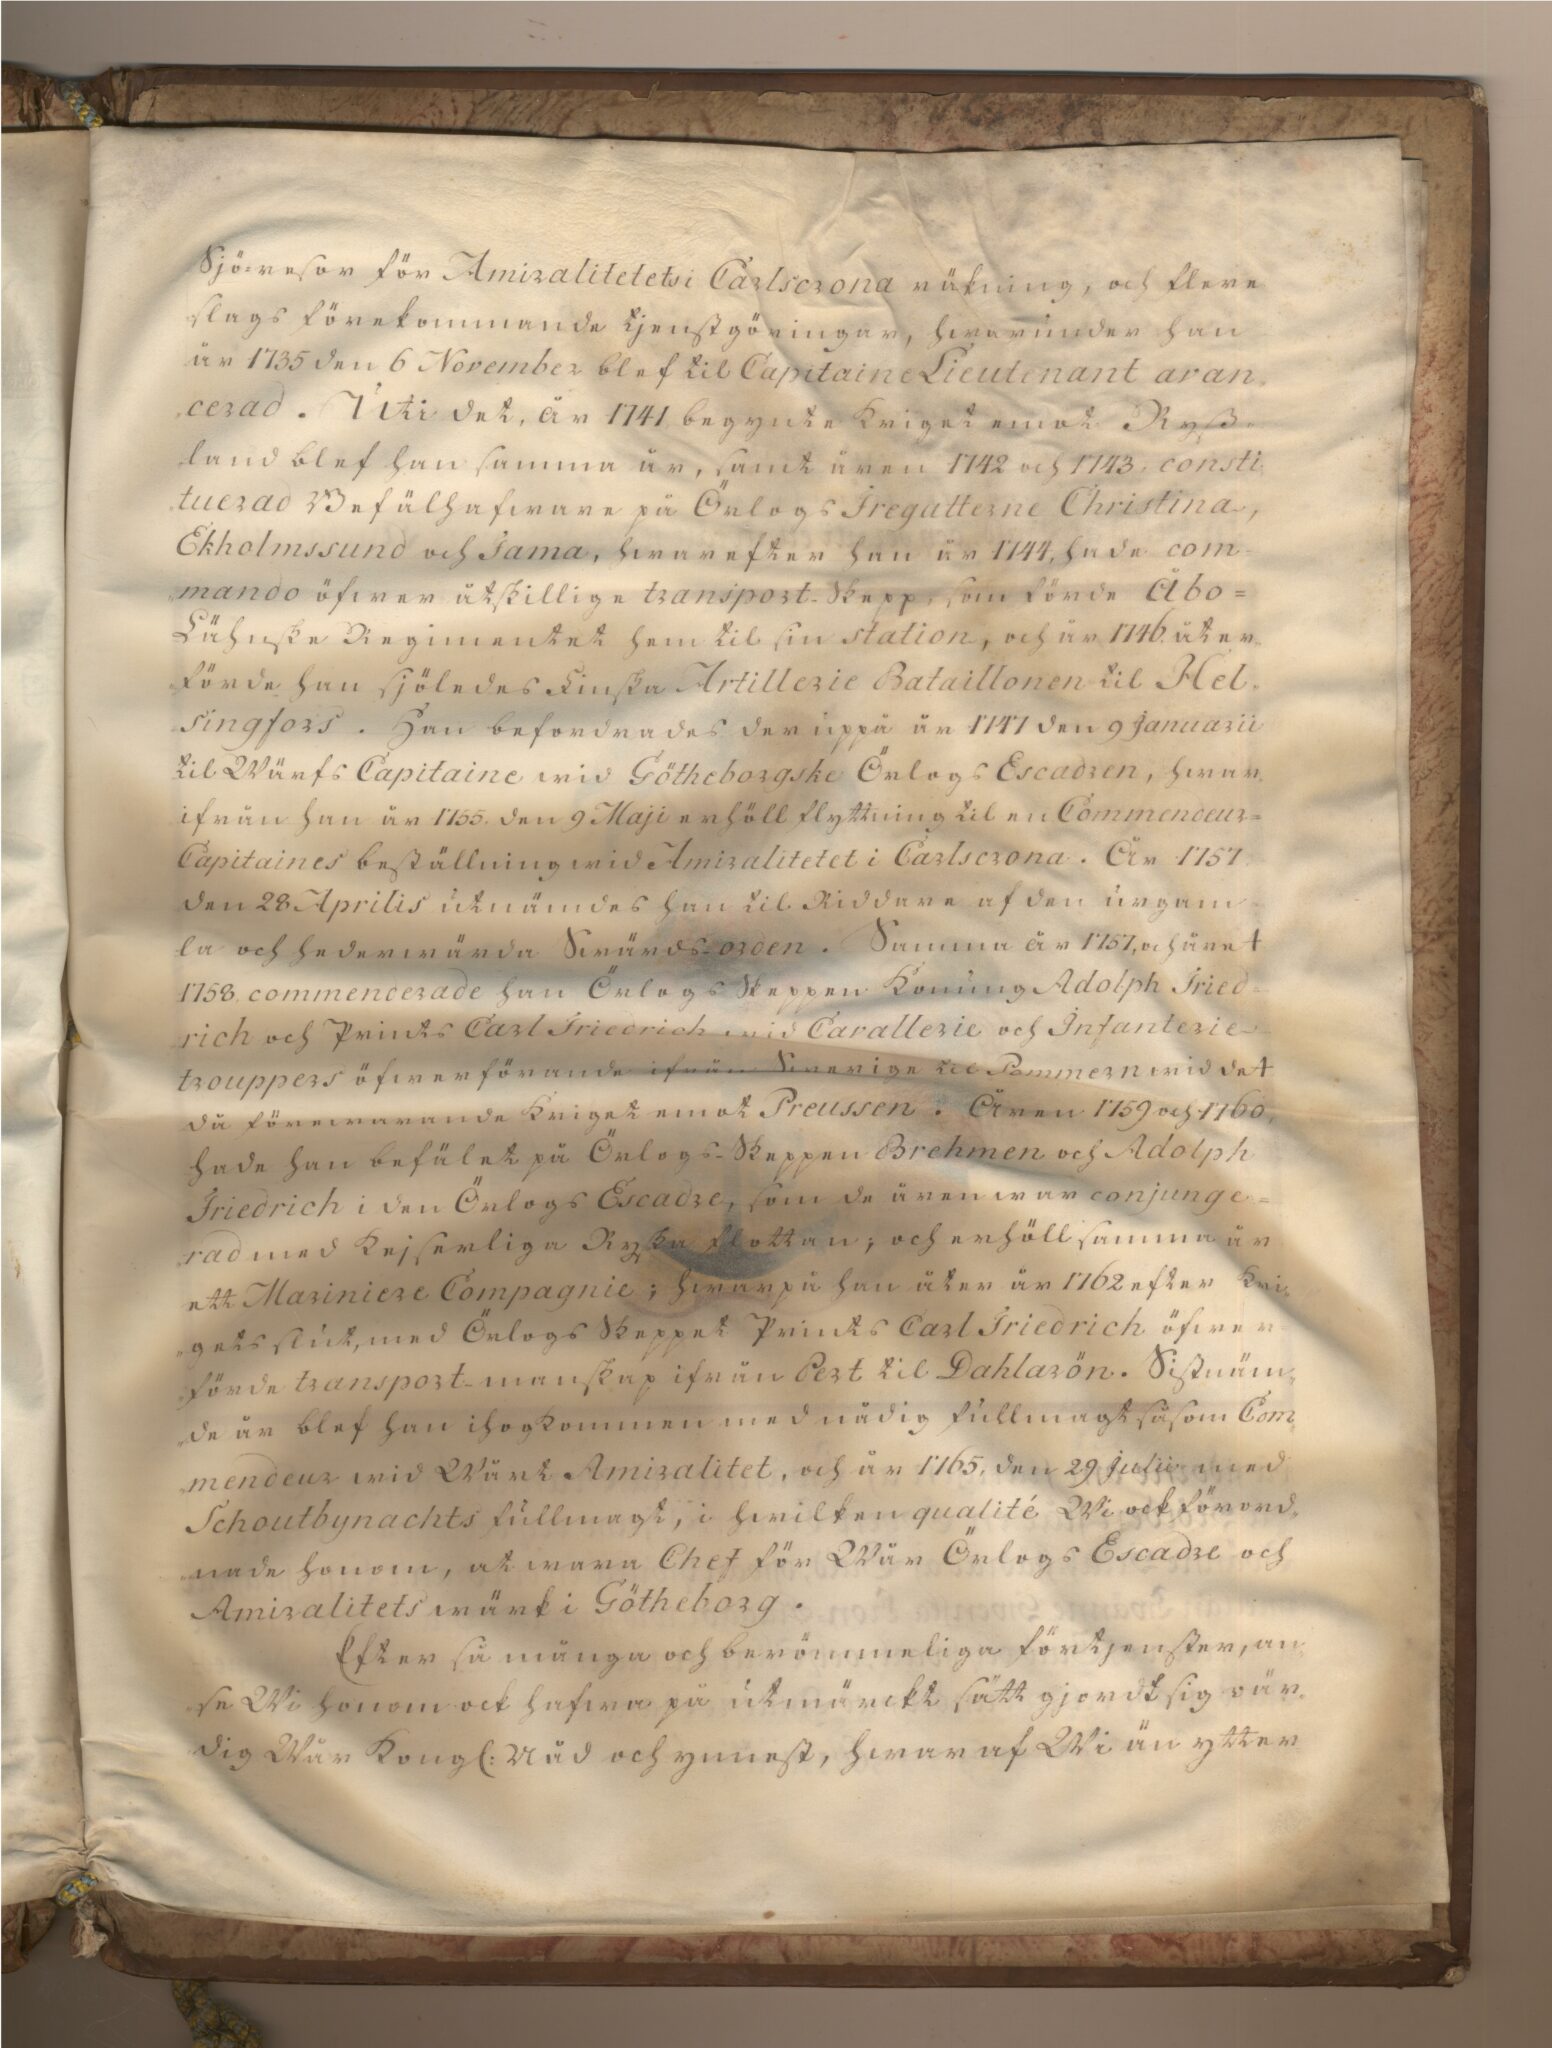 Sjö-resor för Amiralitetets i Carlscrona räkning, och flere
slags förekommande tjenstgöringar, hwarunder han
år 1735 den 6 November blef til Capitaine Lieutenant avan-
cerad. Uti det, år 1741 begynte Kriget emot Ryß-
land blef han samma år, samt även 1742 och 1743. consti-
tuerad Befälhafware på Örlogs Fregatterne Christina,
Ekholmssund och Jama, hwarefter han år 1744, hade com-
mando öfwer åtskillige transport-Skepp, som förde Åbo=
Lähnske Regimentet hem til sin station, och år 1746. åter-
förde han sjöledes Finska Artillerie Bataillonen til Hel-
singfors. Han befordrades deruppå år 1747 den 9 Januarii
til Wärfs Capitaine wid Götheborgske Örlogs Escadren, hwar-
ifrån han år 1755. den 9 Maji erhöll flyttning til en Commendeur=
Capitaines beställning wid Amiralitetet i Carlscrona. År 1757.
den 28 Aprilis utnämdes han til Riddare af den urgam-
la och hederwärda Swärds-orden. Samma år 1757, och året
1758. commenderade han Örlogs Skeppen Konung Adolph Fried-
rich och Prints Carl Friedrich wid Cavallerie och Infanterie-
trouppers öfwerförande ifrån Swerige til Pommern wid det
då förewarande Kriget emot Preussen. Även 1759 och 1760,
hade han befälet på Örlogs-Skeppen Brehmen och Adolph
Friedrich i den Örlogs Escadre, som de även war conjunge=
rad med Kejserliga Ryska flottan; och erhöll samma år
ett Mariniere Compagnie; hwarpå han åter år 1762 efter Kri-
gets slut, med Örlogs Skeppet Prints Carl Friedrich öfwer-
förde transport-manskap ifrån Pert til Dahlarön. Sistnäm-
de år blef han ihogkommen med nådig fullmagt såsom Com-
mendeur wid Wårt Amiralitet, och år 1765. den 29 Julii med
Schoutbynachts fullmagt, i hwilken qualité Wi ock förord-
nade honom, at wara Chef för Wår Örlogs Escadre och
Amiralitets wärk i Götheborg.
Efter så många och berömmeliga förtjenster, an-
se Wi honom ock hafwa på utmärckt sätt gjordt sig vär-
dig Wår Kongl: Nåd och ynnest, hwaraf Wi än ytter